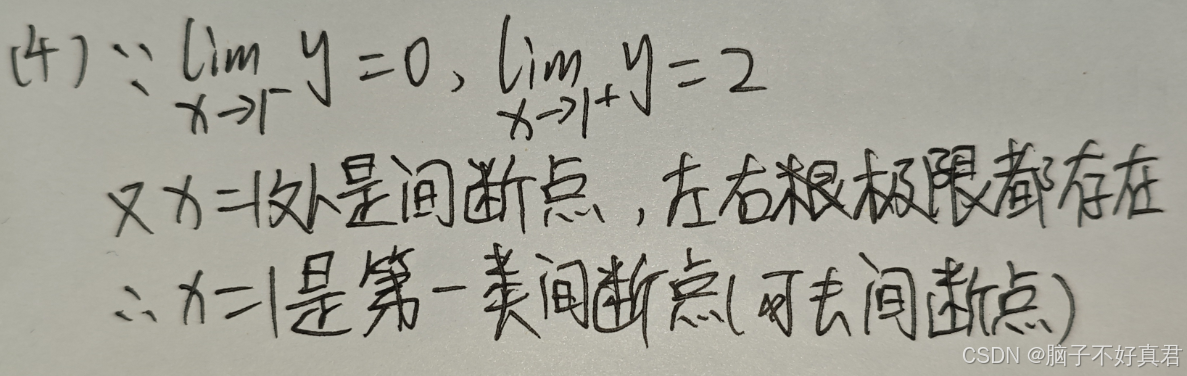 (4) ∵ lim y = 0, lim y = 2
x→1⁻ x→1⁺
又 x=1处是间断点,左右极限都存在
∴ x=1是第一类间断点(可去间断点)
CSDN @脑子不好真君